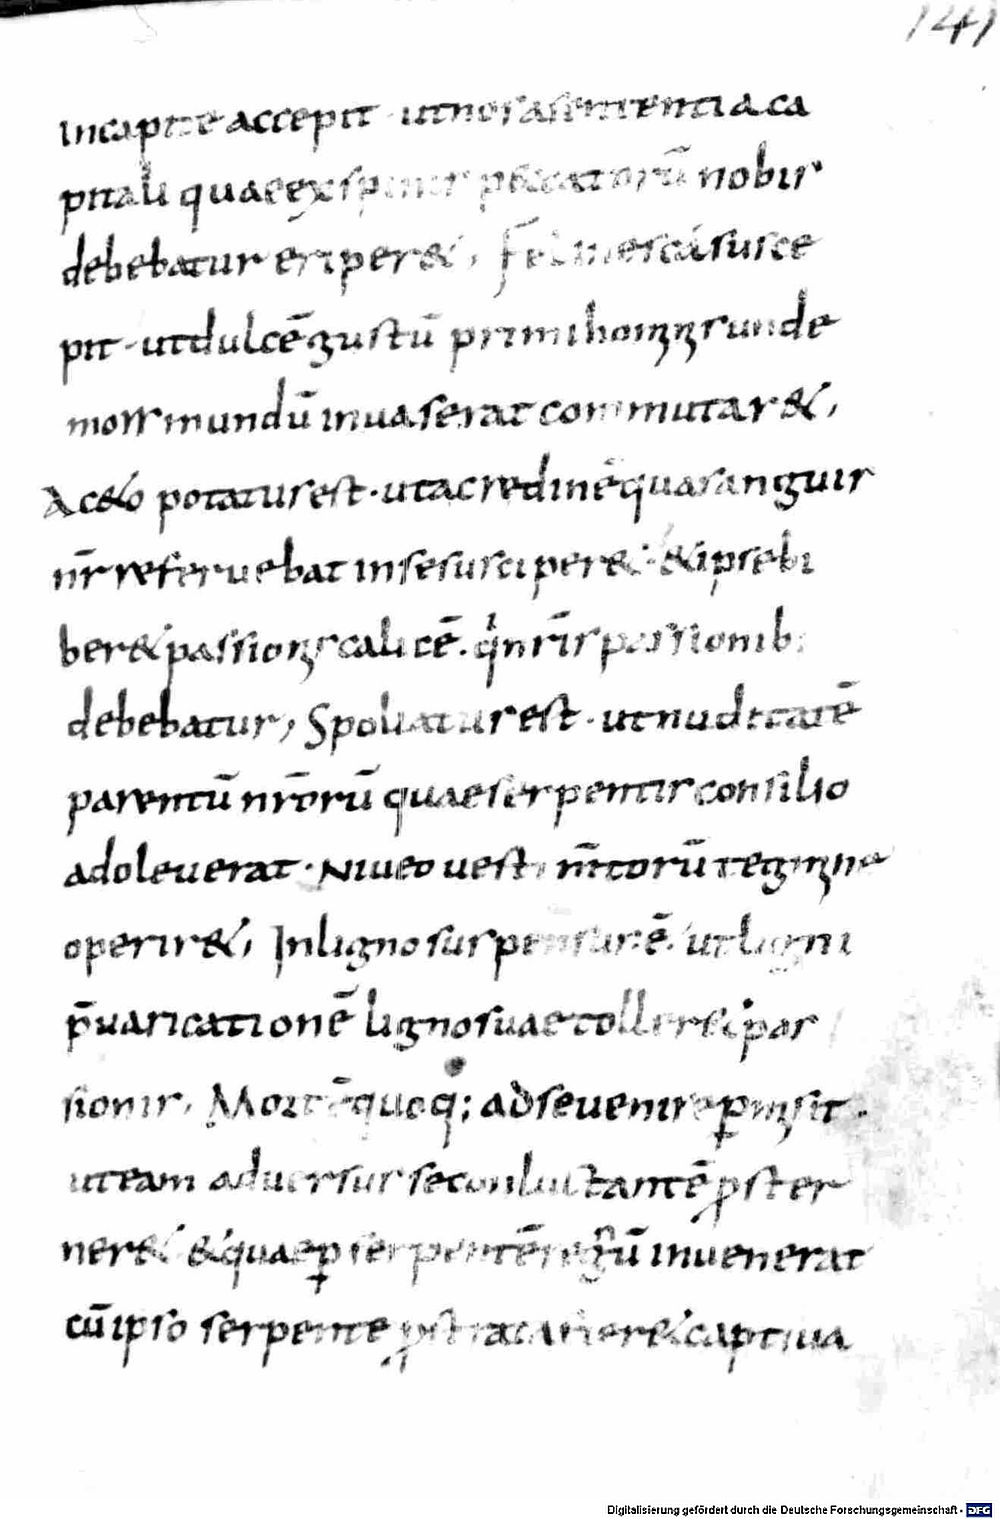 141
incapite accepit · ut nos a sententia ca
pitali quae ex spinis peccatorū nobis
debebatur eriper&, Fel in esca susce
pit · ut dulcē gustū primi hominis unde
mors mundū invaserat commutar&,
Ac&o potatus est · ut acredinē qua sanguis
nr̄ refervebat in se susciper& · & ipse bi
ber& passionis calicē. qi nr̄is passionib;
debebatur, Spoliatur est · ut nuditatē
parentū nr̄orū quae serpentis consilio
adoleverat · niveo vesti m̄torū tegmine
operir&, In ligno suspensus ē. ut ligni
p̄varicationē ligno suae toller& pas
sionis, Mortē quoq; ad se venire ꝑmisit ·
ut eam adversus se conluctantē ꝓster
ner& & quae ꝑ serpentē regnū invenerat
cū ipso serpente ꝓstrata fier& captiva
Digitalisierung gefördert durch die Deutsche Forschungsgemeinschaft - DFG